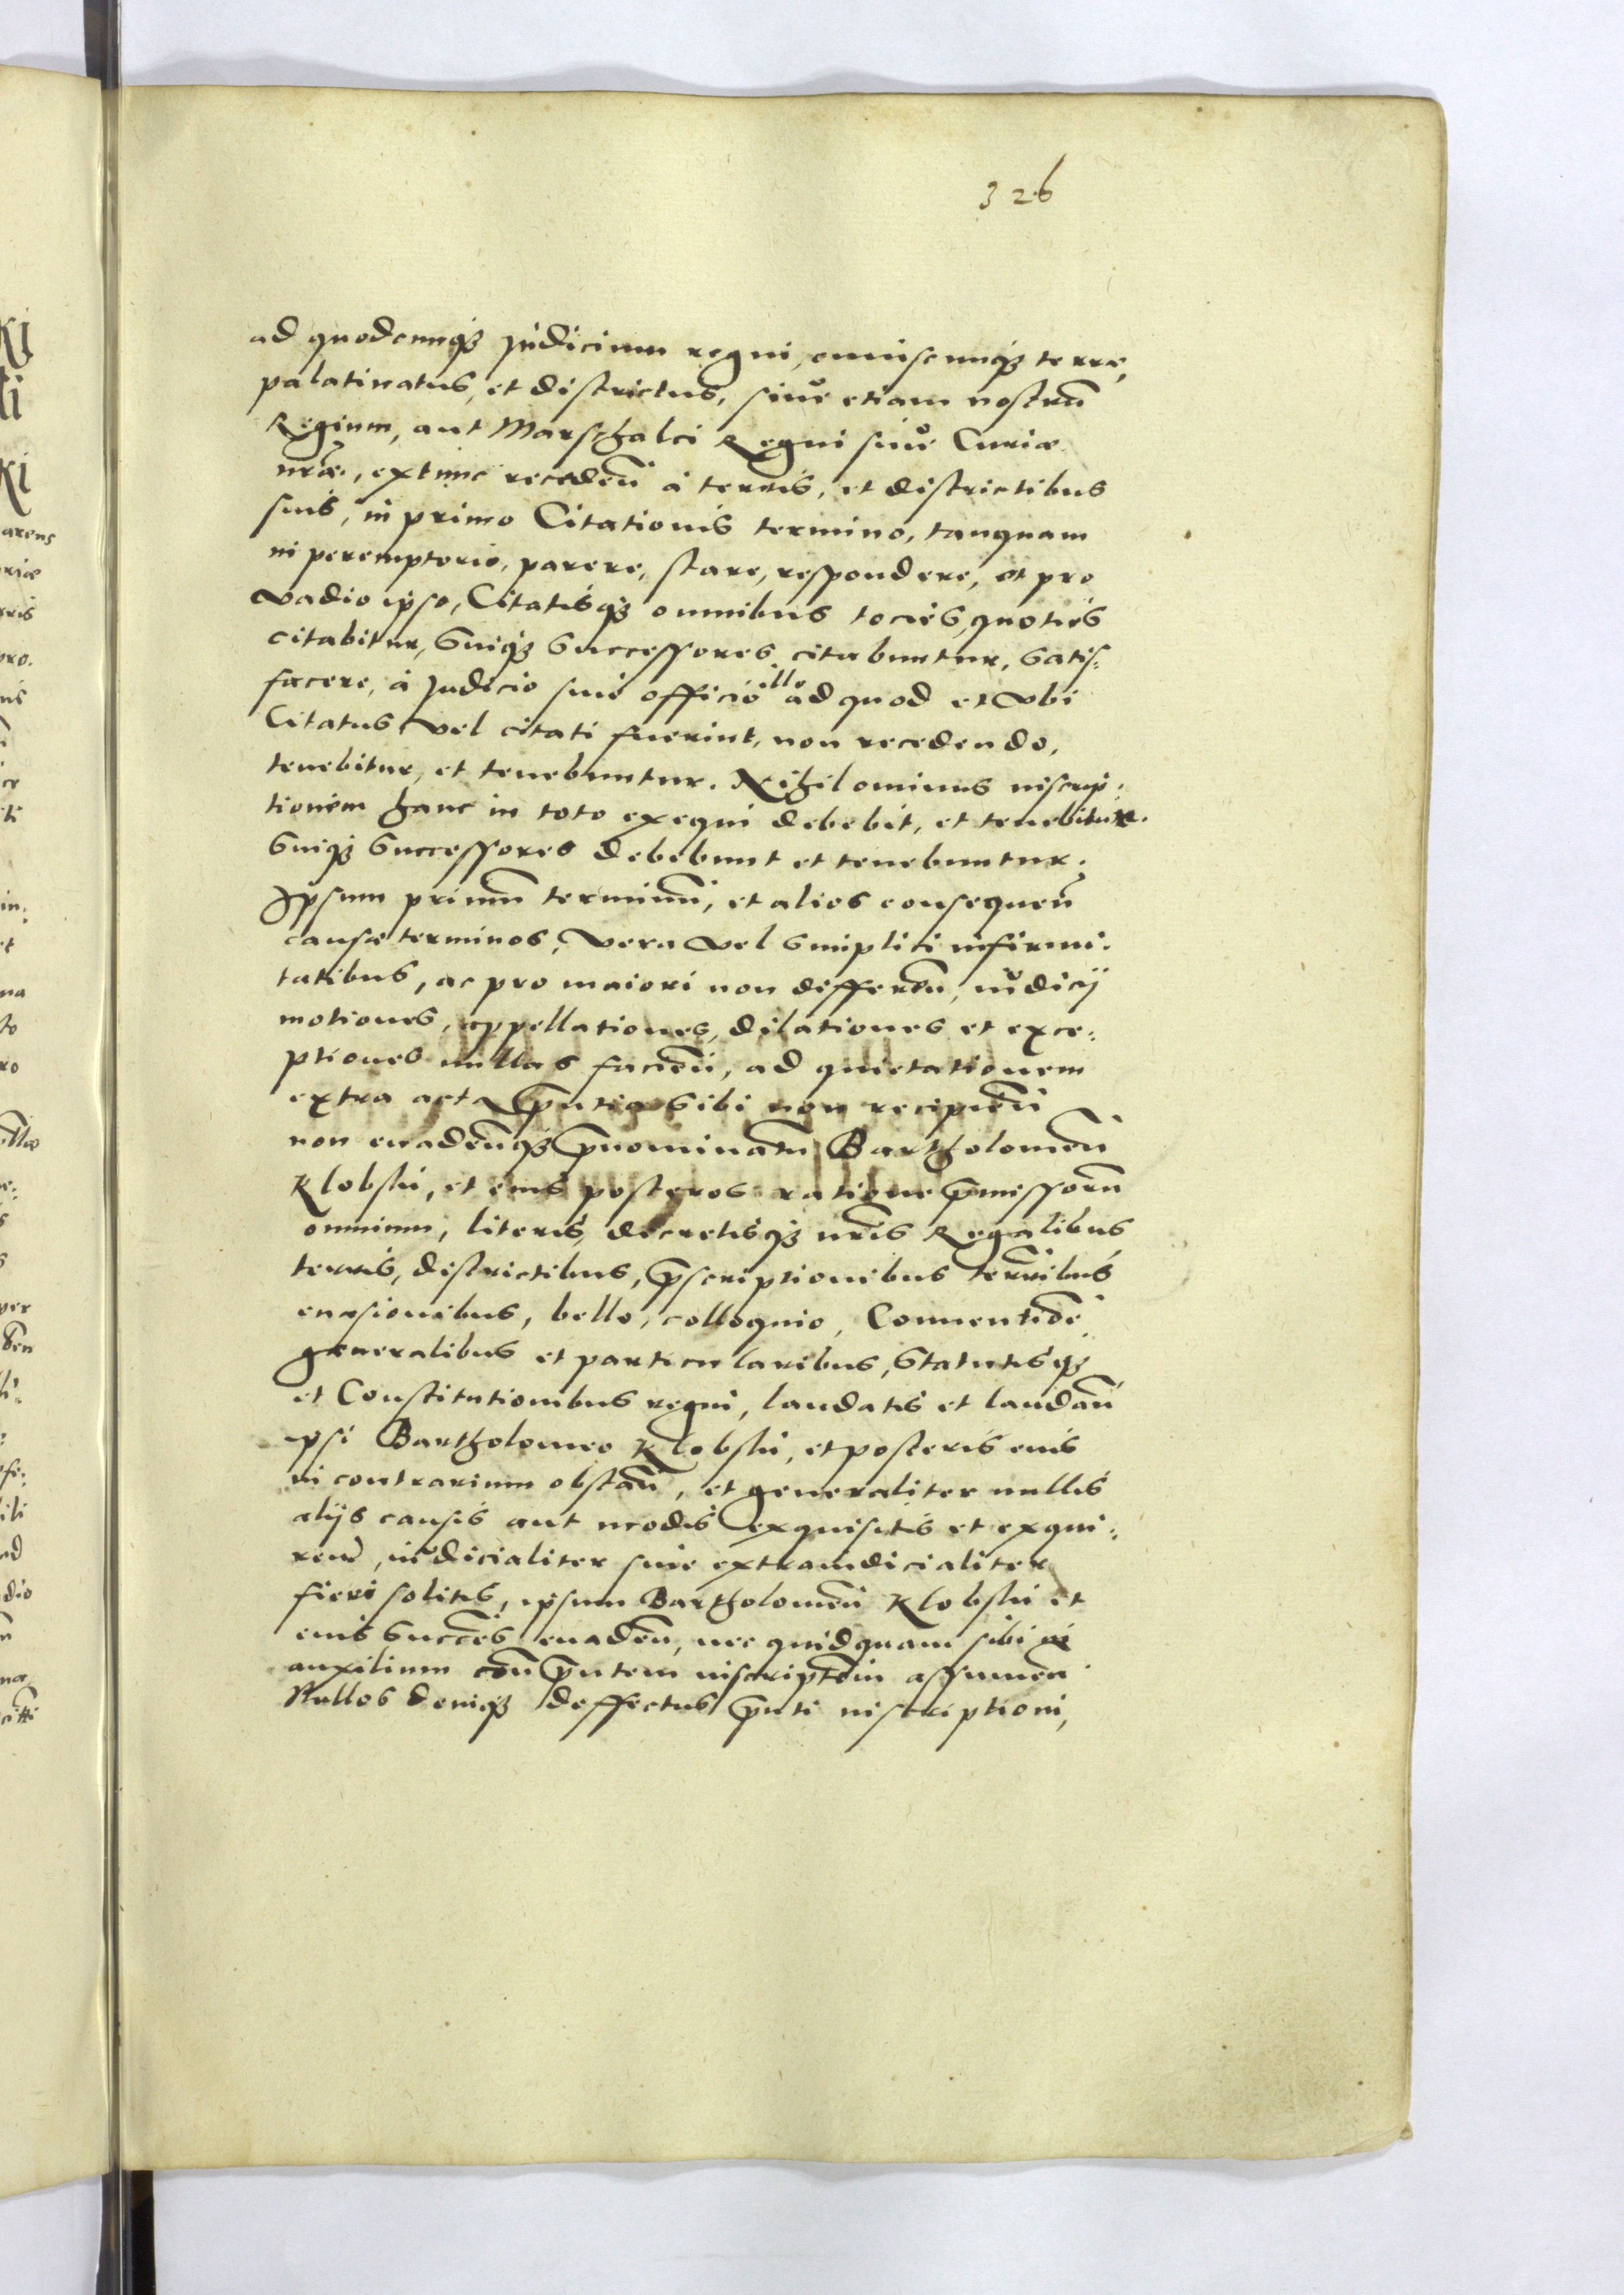 326
ad quodcunq₃ judicium regni, cuiuscunq₃ terræ,
palatinatus, et districtus, siue etiam nostrũ
Regium, aut Marschalci Regni siue Curiæ
nr̃æ, extunc recedeñ à terris, et districtibus
suis, in primo Citationis termino, tanquam
in peremptorio, parere, stare, respondere, et pro
vadio ipso, Citatisq₃ omnibus tocies, quoties
citabitur, Suiq₃ Successores citabuntur, Satis-
facere, à judicio siue officio illo ad quod et vbi
Citatus vel citati fuerint, non recedendo,
tenebitur, et tenebuntur. Nihilominus inscrip-
tionem hanc in toto exequi debebit, et tenebitur.
Suiq₃ Successores debebunt et tenebuntur.
Ipsum primũ terminũ, et alios consequeñ
causæ terminos, vera vel Simplici infirmi-
tatibus, ac pro maiori non differeñ, iudicij
motiones, appellationes, dilationes et exce-
ptiones nullas facieñ, ad quietationem
extra acta p̃ntia Sibi non recipieñ
non euadeñq₃ p̃nominatũ Bartholomeũ
Klobski, et eius posteros ratione p̃missorũ
omnium, literis, decretisq₃ nr̃is Regalibus
terris, districtibus, p̃scriptionibus terr̃ibus
euasionibus, bello, colloquio, Conuentiõe
generalibus et particularibus, Statutisq₃
et Constitutionibus regni, laudatis et laudañ
ipsi Bartholomeo Klobski, et posteris eius
in contrarium obstañ, et generaliter nullis
alijs causis aut modis exquisitis et exqui-
reñ, iudicialiter siue extraiudicialiter
fieri solitis, ipsum Bartholomeũ Klobski et
eius Succes̃ euadeñ, nec quidquam sibi in
auxilium coñ p̃ntem inscriptõem assumeñ
Nullos deniq₃ deffectus p̃nti inscriptioni,